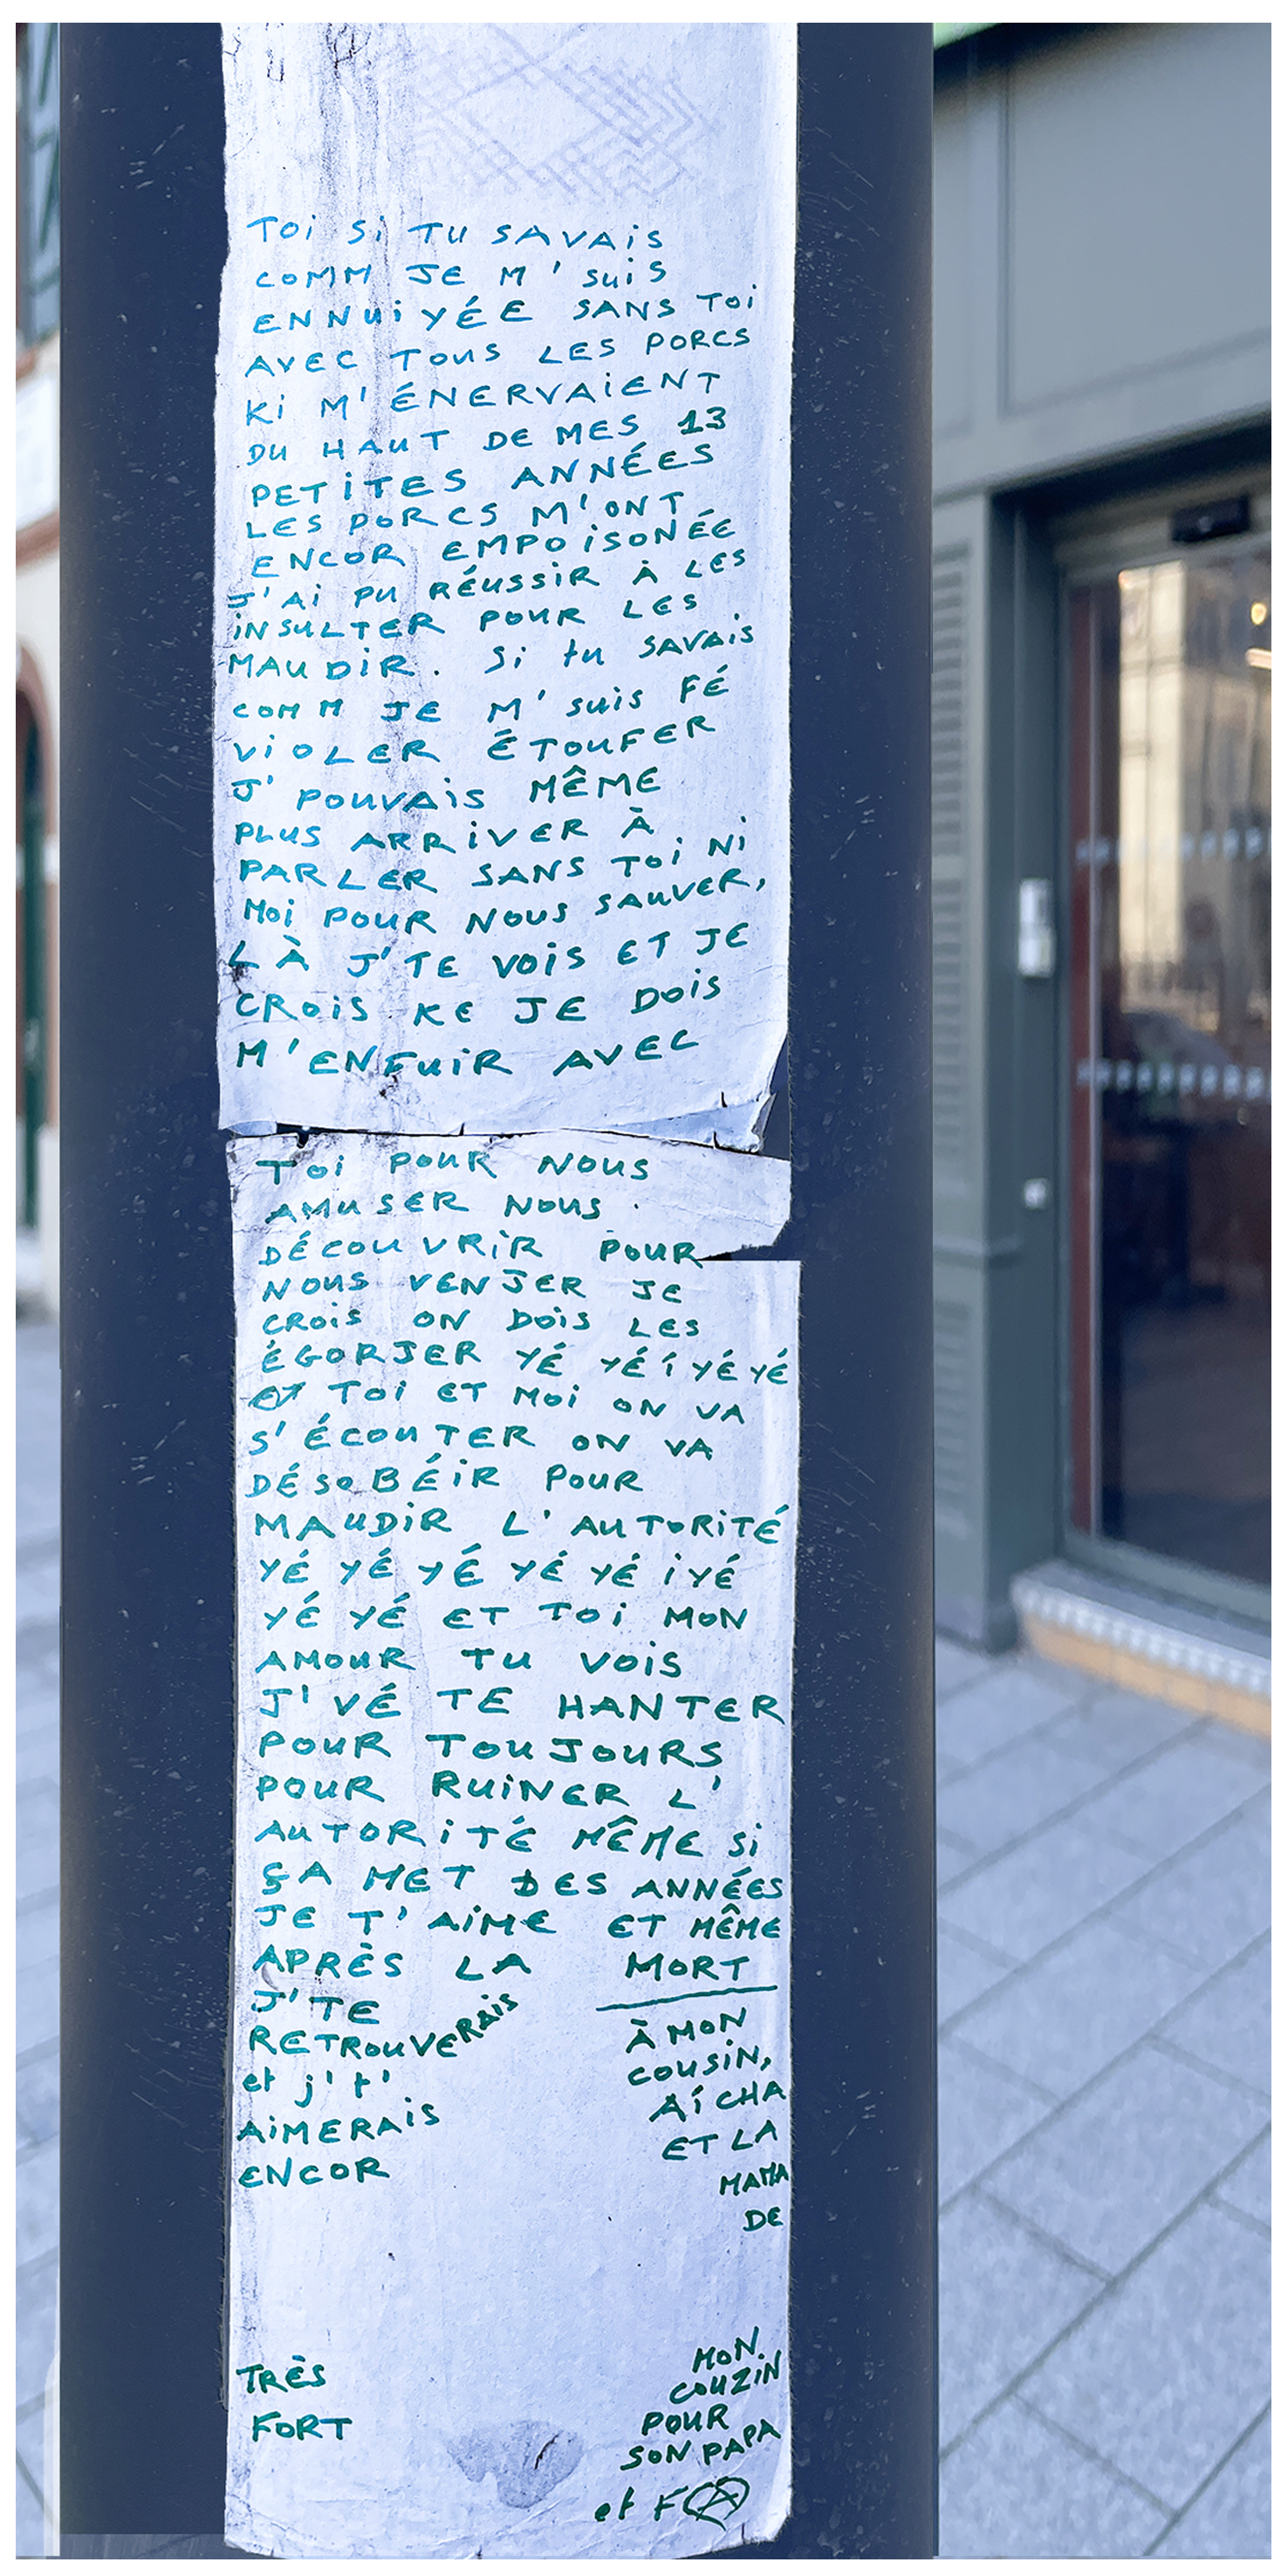 TOi Si TU SAVAiS
COMM JE M'SuiS
ENNUiYÉE SANS TOi
AVEC TOUS LES PORCS
Ki M'ÉNERVAiENT
DU HAUT DE MES 13
PETiTES ANNÉES
LES PORCS M'ONT
ENCOR EMPOiSONÉE
J'Ai PU RÉUSSiR À LES
iNSULTER POUR LES
MAUDiR. Si tu SAVAiS
COMM JE M'SuiS FÉ
ViOLER ÉTOUFER
J'POUVAiS MÊME
PLUS ARRiVER À
PARLER SANS TOi Ni
MOi POUR NOUS SAUVER,
LÀ J'TE VOiS ET JE
CROiS KE JE DOiS
M'ENFUiR AVEC
TOi POUR NOUS
AMUSER NOUS
DÉCOUVRiR POUR
NOUS VENJER JE
CROiS ON DOiS LES
ÉGORJER YÉ YÉ í YÉ YÉ
ET TOi ET MOi ON VA
S'ÉCOUTER ON VA
DÉSOBÉiR POUR
MAUDiR L'AUTORiTÉ
YÉ YÉ YÉ YÉ YÉ i YÉ
YÉ YÉ ET TOi MON
AMOUR TU VOiS
J'VÉ TE HANTER
POUR TOUJOURS
POUR RUiNER L'
AUTORiTÉ MÊME Si
ÇA MET DES ANNÉES
JE T'AiME ET MÊME
APRÈS LA MORT
J'TE
RETROUVERAiS
et j't'
AiMERAiS
ENCOR
TRÈS
FORT
À MON
COUSiN,
AíCHA
ET LA
MAMA
DE
MON
COUZiN
POUR
SON PAPA
et F